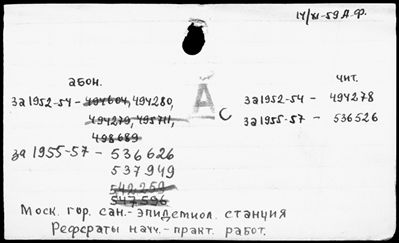 14/XI-59 А.Ф.
абон.
за 1952-54 - 494604, 494280,
494279, 495711,
498689
за 1955-57 - 536626
537949
542259
547596
А с
чит.
за 1952-54 - 494278
за 1955-57 - 536526
Моск. гор. сан.-эпидемиол. станция
Рефераты науч.-практ. работ.